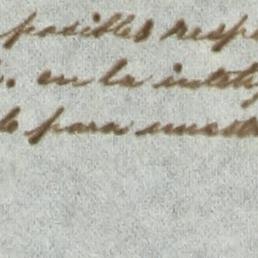 posibles resp
. en la intelig
para nuest